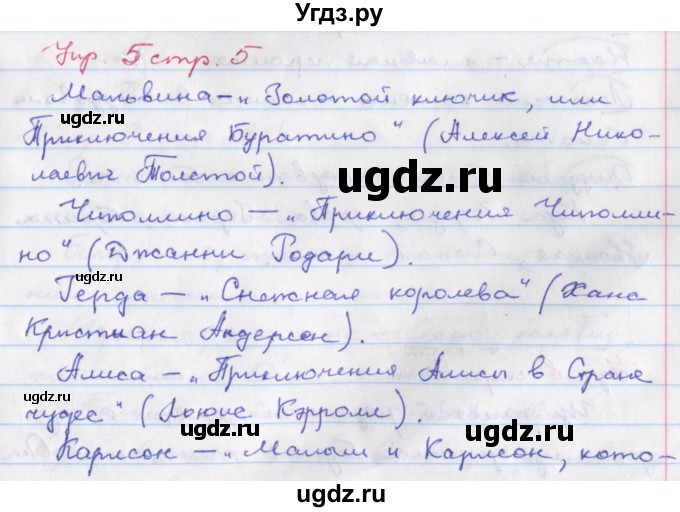 Угдз.ру
Упр. 5 стр. 5
Мальвина – „Золотой ключик, или
Приключения Буратино“ (Алексей Нико-
лаевич Толстой).
ugdz.ru
ugdz.ru
Чиполлино – „Приключения Чиполли-
но“ (Джанни Родари).
ugdz.ru
Герда – „Снежная королева“ (Ханс
Кристиан Андерсен).
ugdz.ru
Алиса – „Приключения Алисы в Стране
чудес“ (Льюис Кэрролл).
ugdz.ru
ugdz.ru
Карлсон – „Малыш и Карлсон, кото-
ugdz.ru